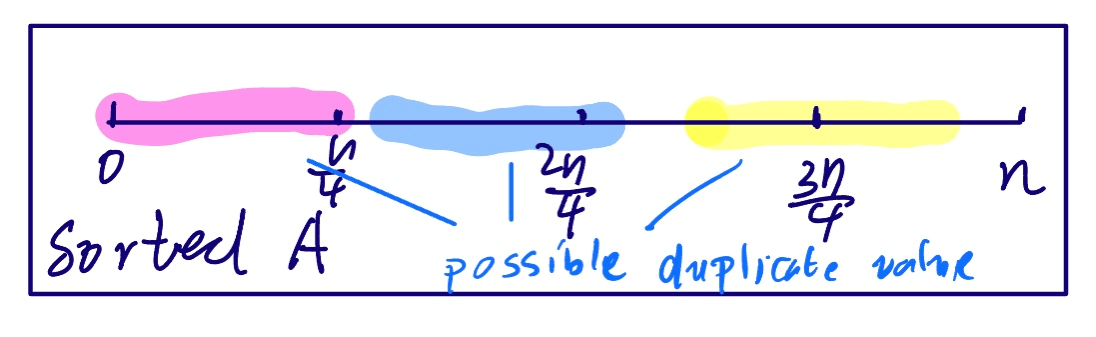 0 n/4 2n/4 3n/4 n
Sorted A
possible duplicate value